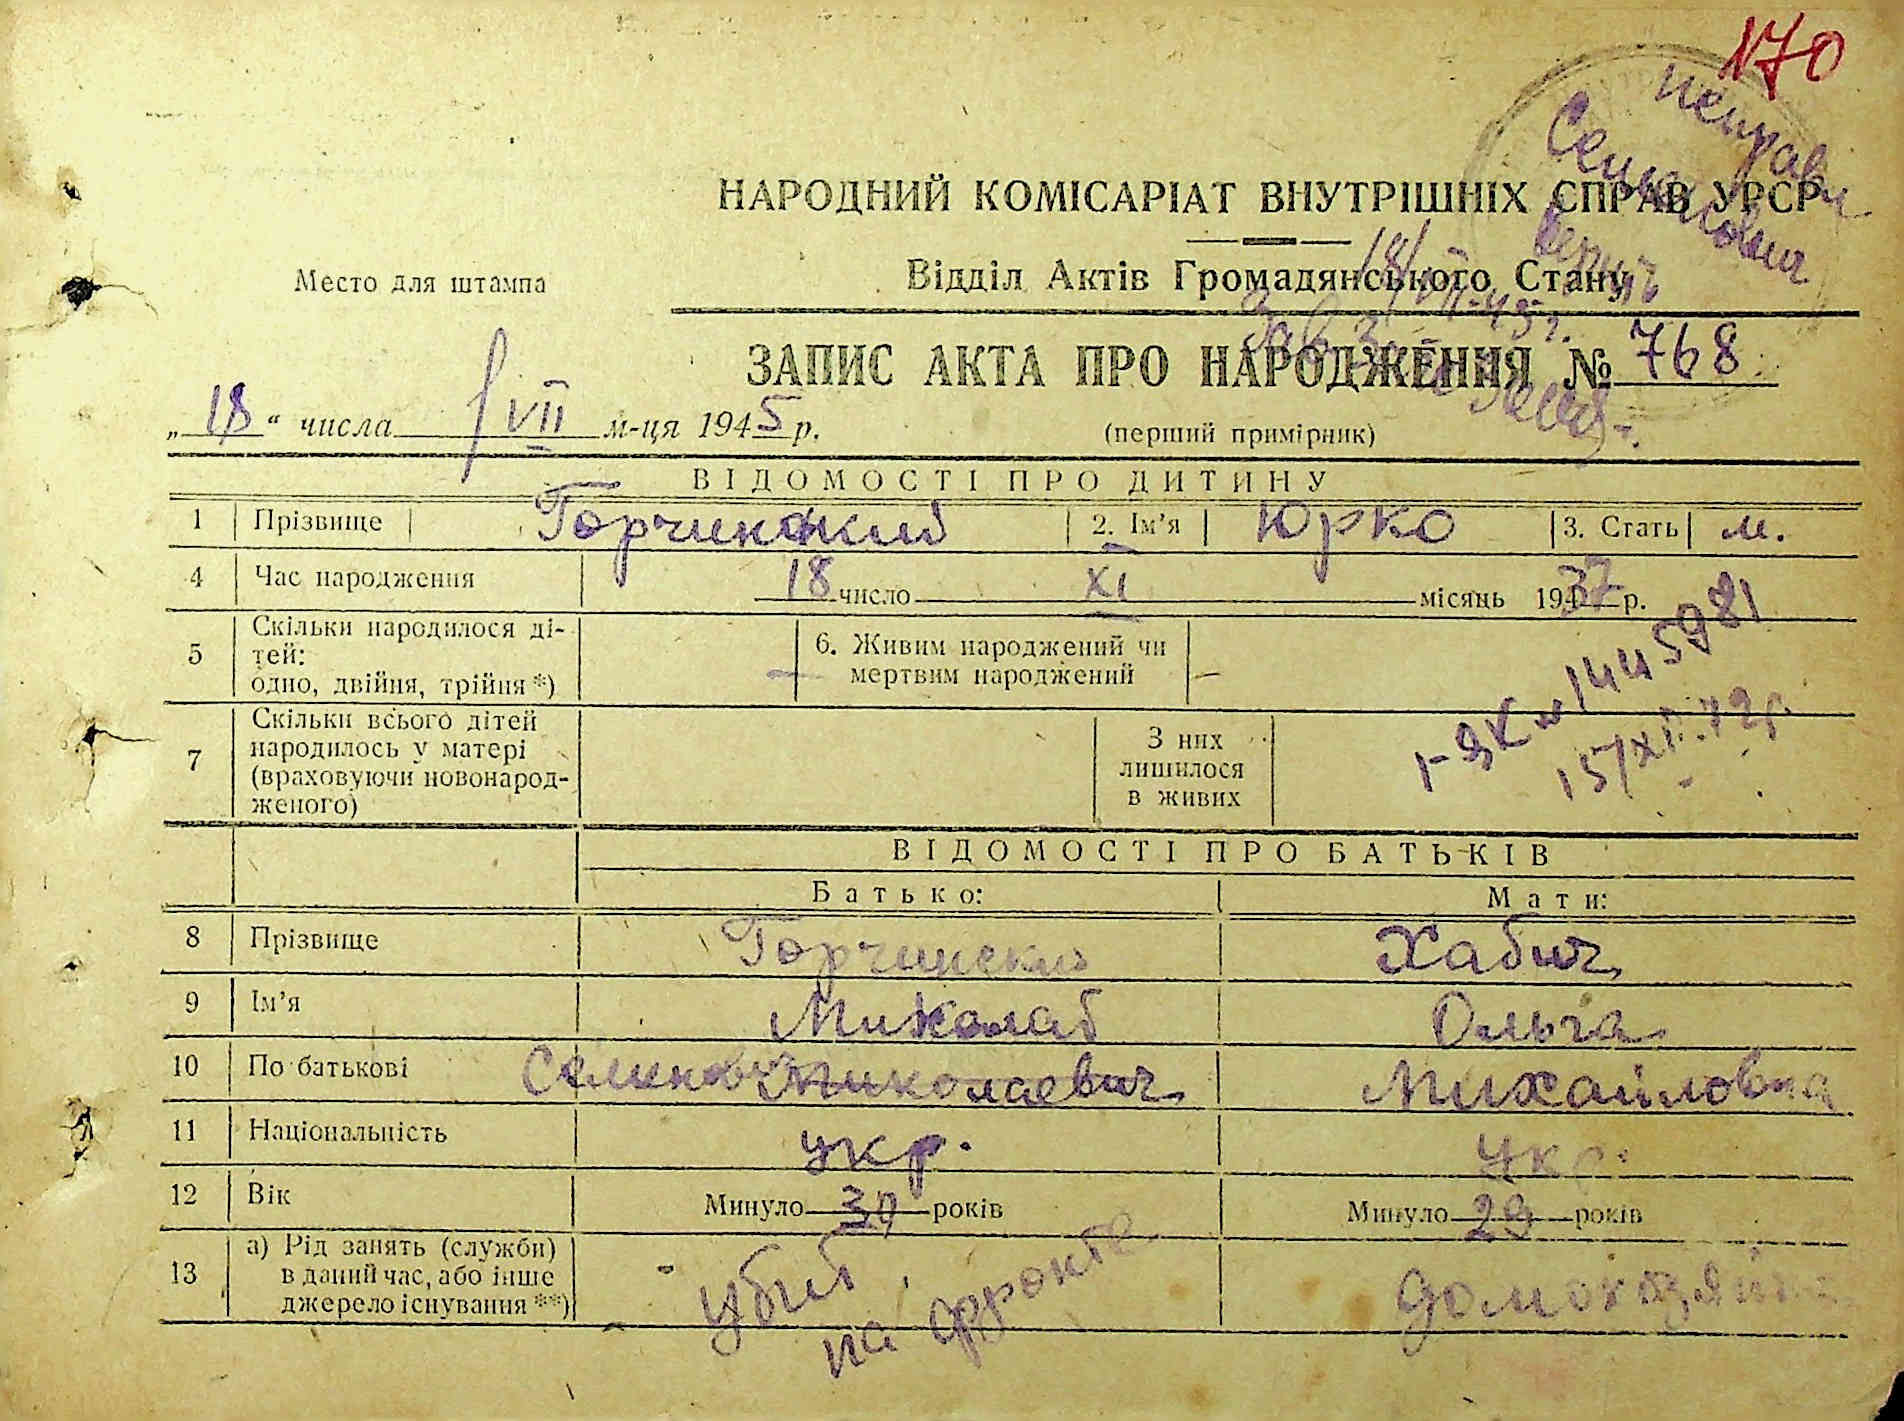 170
исправл
Семенович
верить
НАРОДНИЙ КОМІСАРІАТ ВНУТРІШНІХ СПРАВ УРСР
18/VII-45 г.
Место для штампа
Відділ Актів Громадянського Стану
Зав.
ЗАПИС АКТА ПРО НАРОДЖЕННЯ № 768
„18“ числа VII м-ця 1945 р.
(перший примірник)
ВІДОМОСТІ ПРО ДИТИНУ
1 Прізвище Горчинский 2. Ім’я Юрко 3. Стать м.
4 Час народження 18 число XI місяць 1937 р.
5 Скільки народилося ді-
тей:
одно, двійня, трійня *) —
6. Живим народжений чи
мертвим народжений —
I-ЯК № 1445981
15/XII.72р.
7 Скільки всього дітей
народилось у матері
(враховуючи новонарод-
женого)
З них
лишилося
в живих
ВІДОМОСТІ ПРО БАТЬКІВ
Батько: Мати:
8 Прізвище Горчинский Хабич
9 Ім’я Миколай Ольга
10 По батькові Семенов Николаевич Михайловна
11 Національність укр. укр.
12 Вік Минуло років Минуло 29 років
13 а) Рід занять (служби)
в даний час, або інше
джерело існування **)
Убит
на фронте
домохозяйка